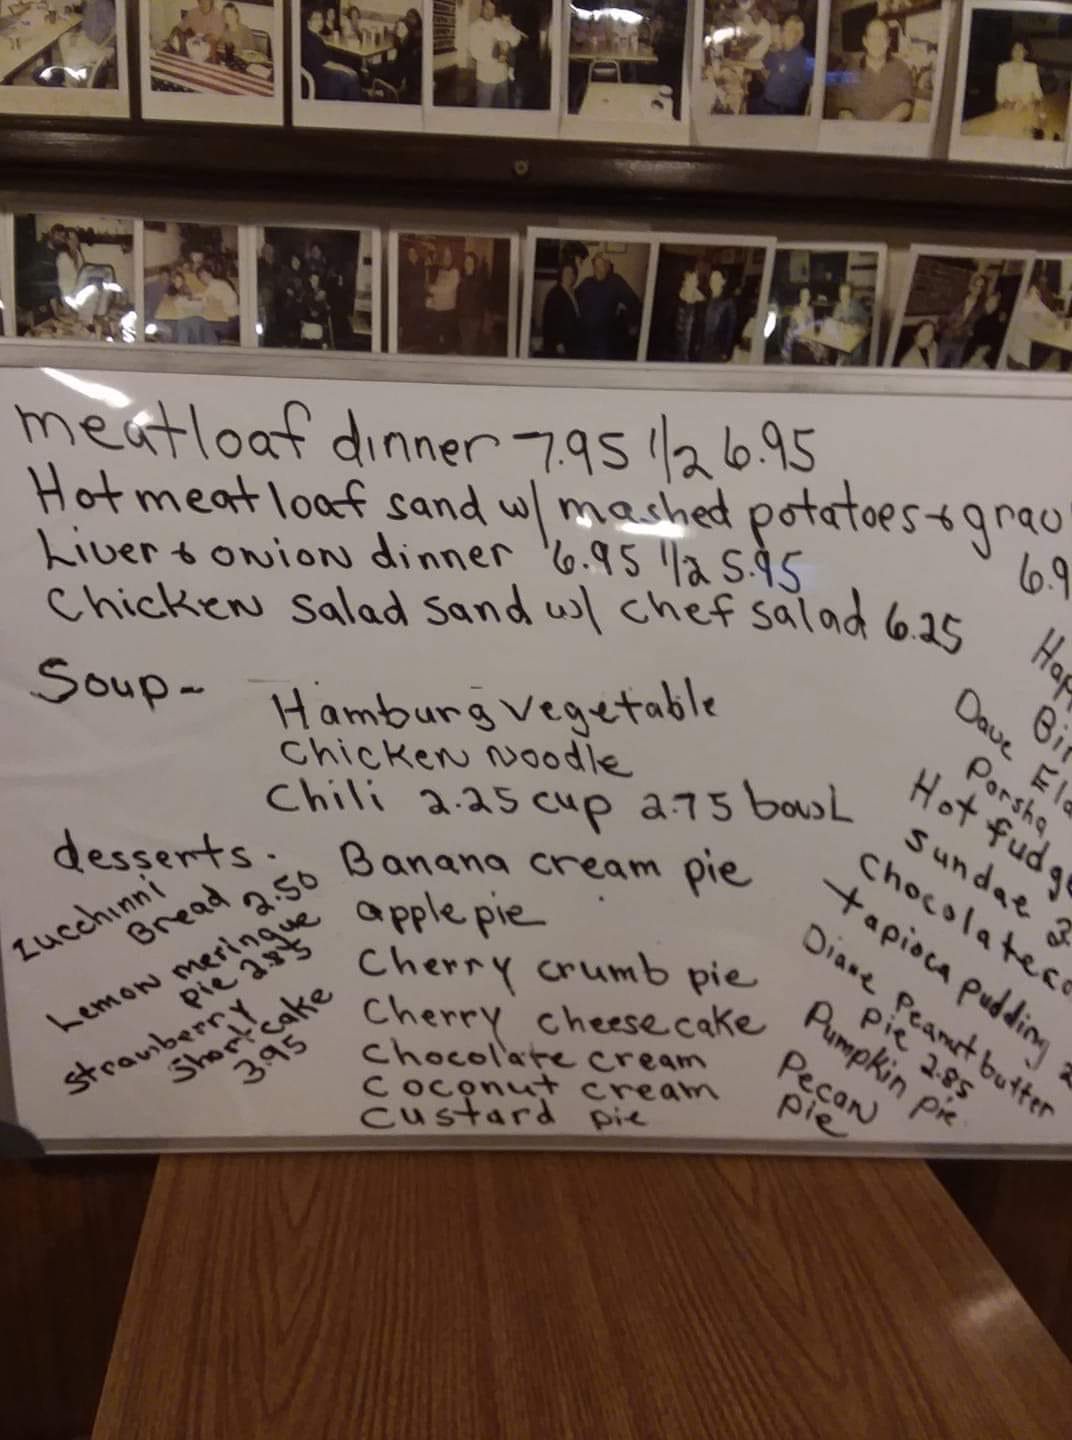 meatloaf dinner 7.95 1/2 6.95
Hot meatloaf sand w/ mashed potatoes & grav
6.9
Liver & onion dinner 6.95 1/2 5.95
Chicken salad sand w/ chef salad 6.25
Soup-
Hamburg vegetable
Chicken Noodle
Chili 2.25 cup 2.75 bowl
desserts.
Zucchinni
Bread 2.50
Lemon meringue
pie 2.85
Strawberry
Short cake
3.95
Banana cream pie
apple pie
Cherry crumb pie
Cherry cheesecake
Chocolate cream
Coconut cream
Custard pie
Hap
Bir
Dave Ela
Porsha
Hot fudge
Sundae 3
Chocolate co
tapioca pudding 2
Diane Peanut butter
Pie 2.85
Pumpkin pie
Pecan
Pie